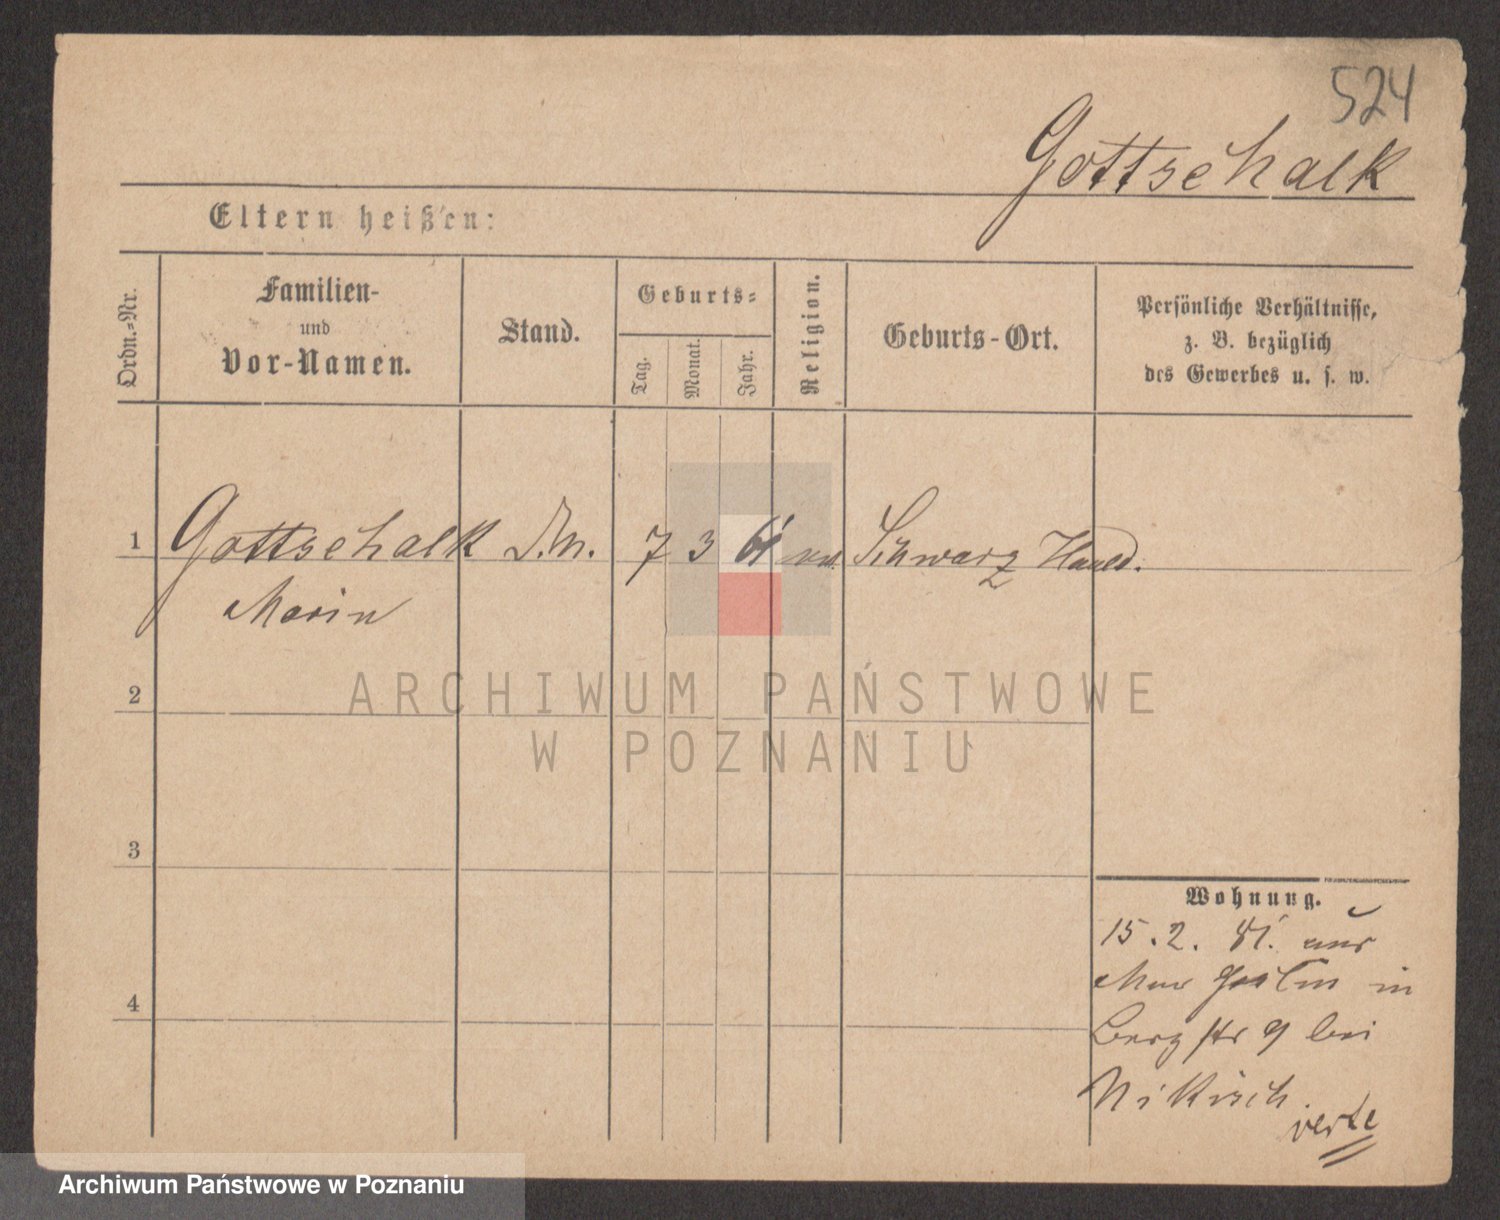 524
Gottschalk
Eltern heißen:
Ordn.-Nr.
Familien-
und
Vor-Namen.
Stand.
Geburts-
Tag.
Monat.
Jahr.
Religion.
Geburts-Ort.
Persönliche Verhältnisse,
z. B. bezüglich
des Gewerbes u. s. w.
1 Gottschalk D.M. 7 3 61 Schwarz Hauld.
2
3
4
ARCHIWUM PAŃSTWOWE
W POZNANIU
Wohnung.
15.2. 81. aus
in
Berg str 9 bei
Nikisch
verte
Archiwum Państwowe w Poznaniu